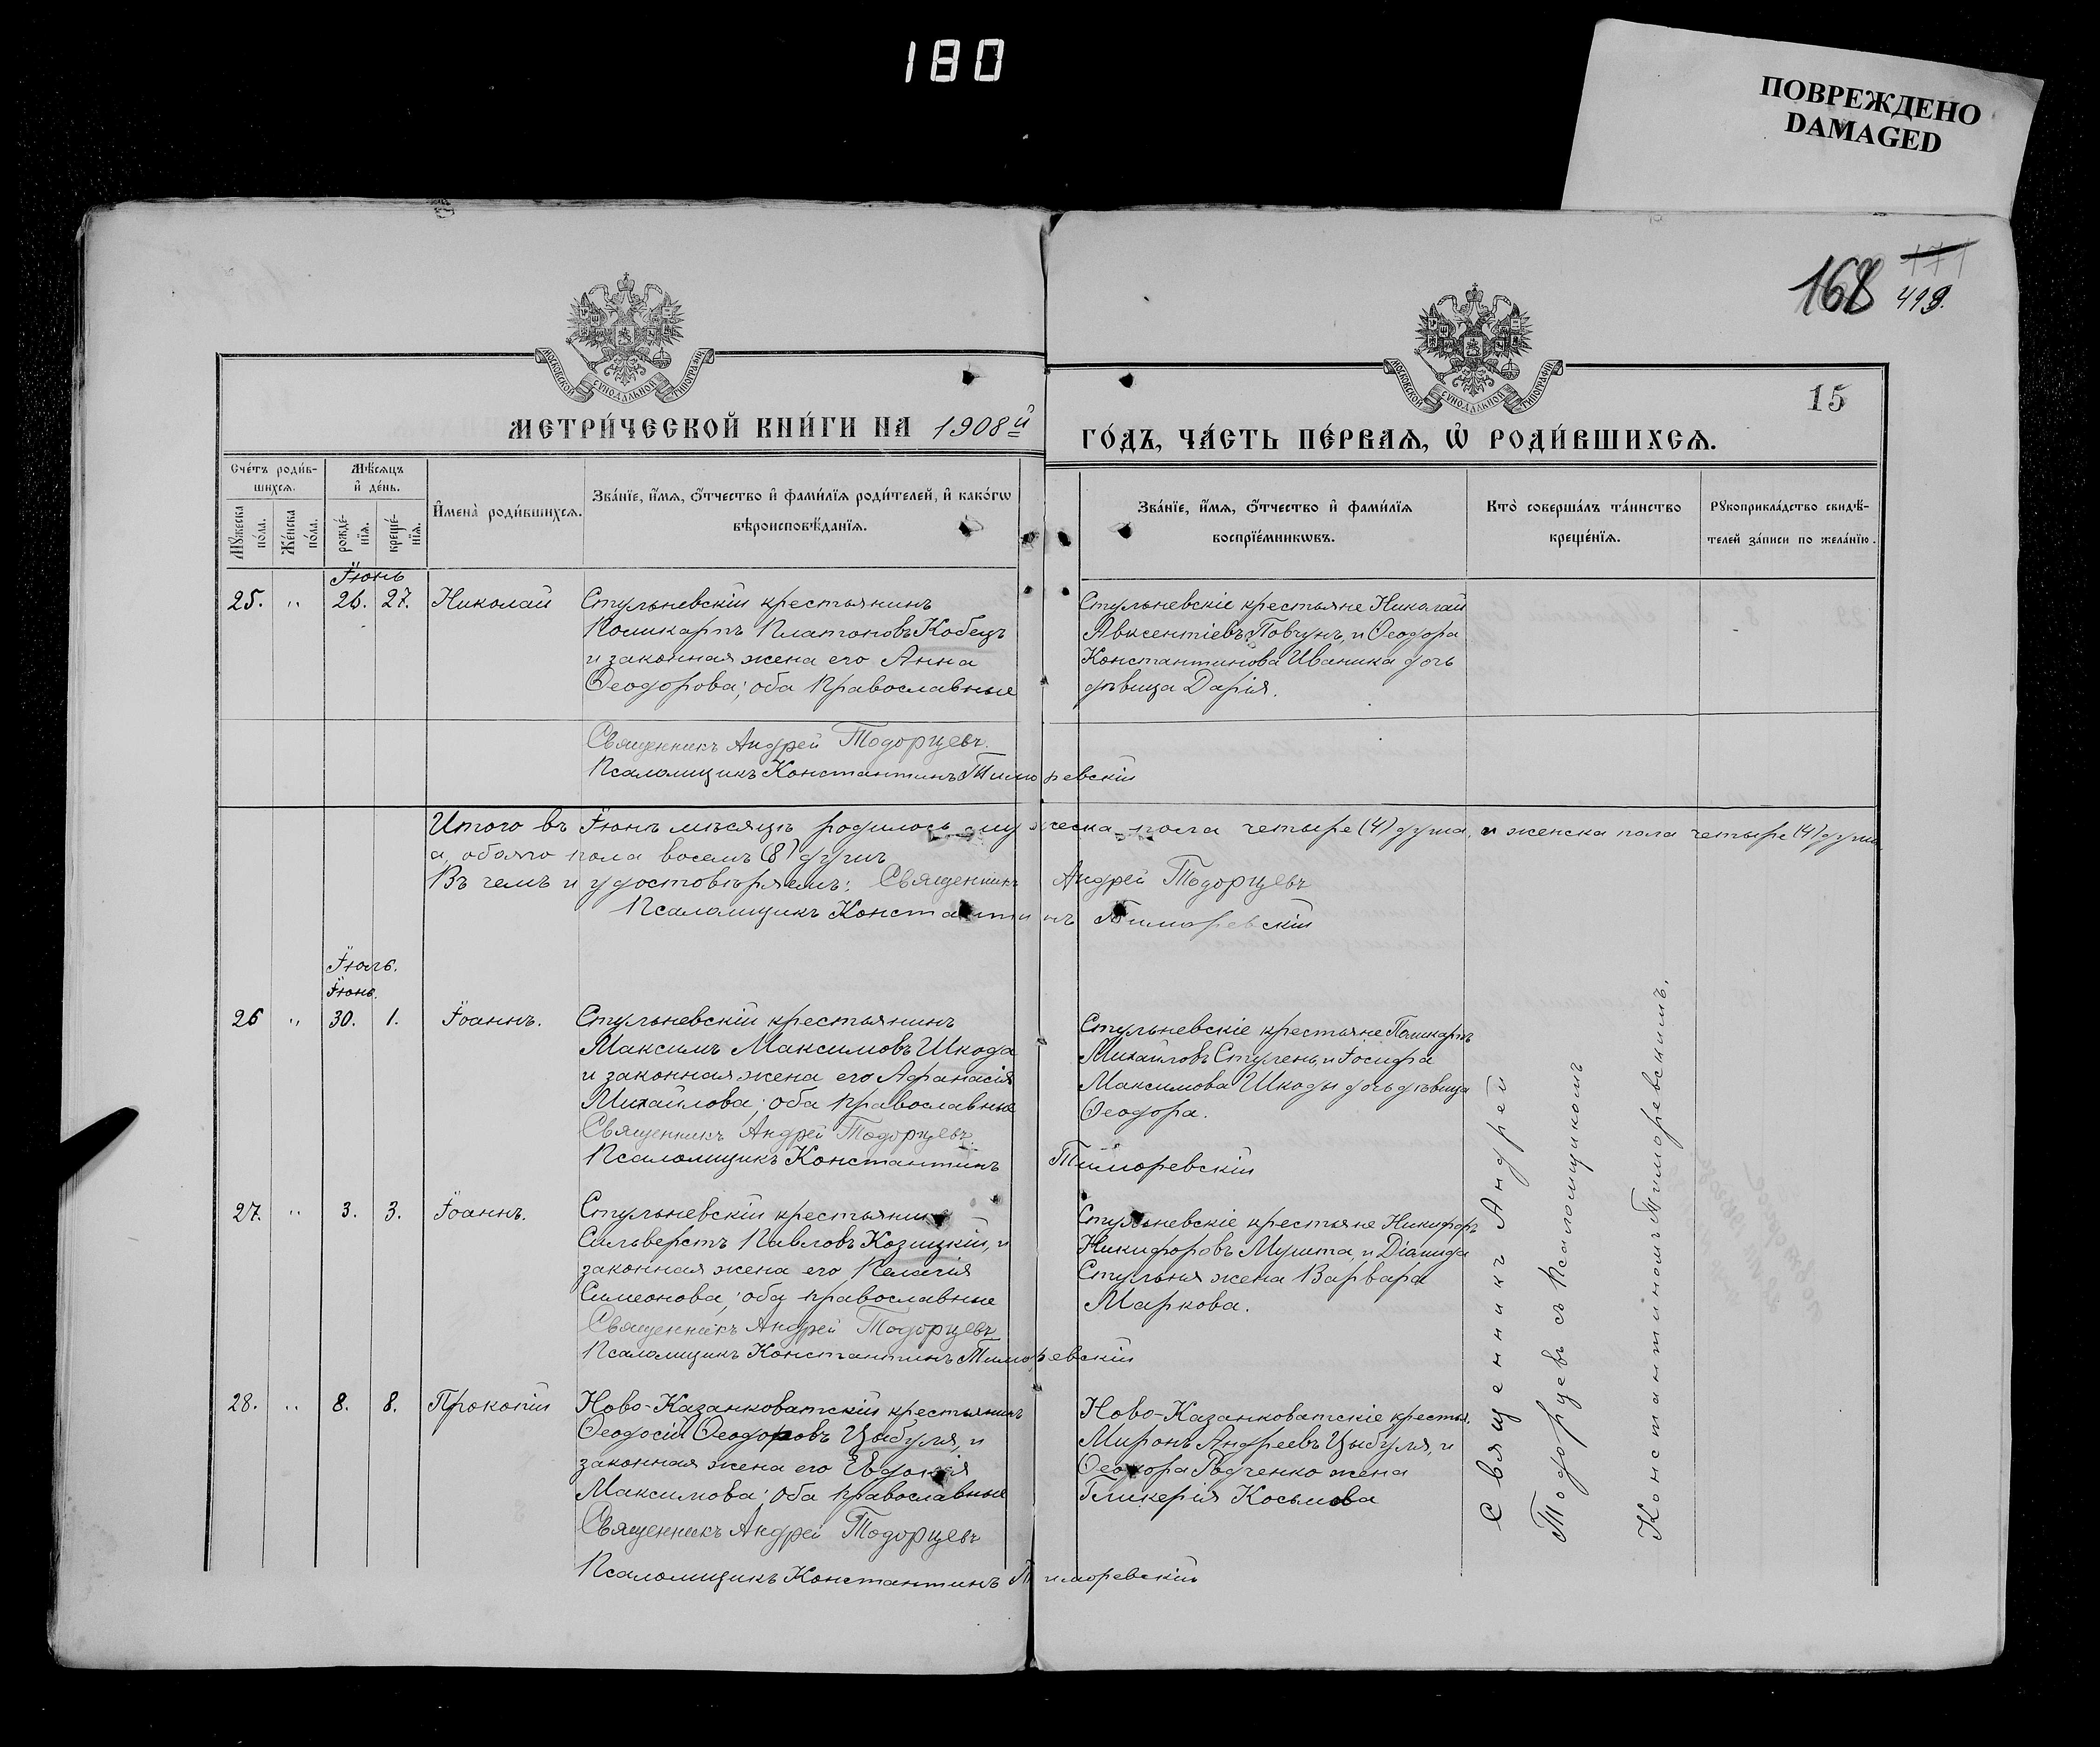 180
ПОВРЕЖДЕНО
DAMAGED
168 171
419.
15
МОСКОВСКОЙ СѴНОДАЛЬНОЙ ТИПОГРАФІИ
МОСКОВСКОЙ СѴНОДАЛЬНОЙ ТИПОГРАФІИ
МЕТРИ́ЧЕСКОЙ КНИ́ГИ НА 1908й
ГО́ДЪ, ЧА́СТЬ ПЕ́РВАѦ, Ѡ҆ РОДИ́ВШИХСѦ.
Сче́тъ роди́в-
шихсѧ.
Мꙋ́жеска
по́ла.
Же́нска
по́ла.
Мѣ́сѧцъ
и҆ де́нь.
рожде́-
нїѧ.
креще́-
нїѧ.
И҆мена̀ роди́вшихсѧ.
Зва́нїе, и҆́мѧ, ѻ҆́тчество и҆ фами́лїѧ роди́телей, и҆ како́гѡ
вѣроисповѣ́данїѧ.
Зва́нїе, и҆́мѧ, ѻ҆́тчество и҆ фами́лїѧ
воспрїе́мникѡвъ.
Кто̀ соверша́лъ та́инство
креще́нїѧ.
Рꙋкоприкла́дство свидѣ́-
телей за́писи по жела́нїю.
Іюнь
25. " 26. 27. Николай
Стульневскій крестьянинъ
Поликарпъ Платоновъ Кобецъ
и законная жена его Анна
Ѳеодорова; оба православные
Стульневскіе крестьяне Николай
Авксентіевъ Повчунъ, и Ѳеодора
Константинова Иваника дочь
дѣвица Дарія.
Священникъ Андрей Тодорцевъ.
Псаломщикъ Константинъ Тиморевскій
Итого въ Іюнѣ мѣсяцѣ родилось мужеска пола четыре (4) душа, и женска пола четыре (4) душа
а, обоего пола восемь (8) душъ
Въ чемъ и удостовѣряемъ: Священникъ Андрей Тодорцевъ
Псаломщикъ Константинъ Тиморевскій
Іюль.
Іюнь.
26 " 30. 1. Іоаннъ.
Стульневскій крестьянинъ
Максимъ Максимовъ Шкода
и законная жена его Афанасія
Михайлова; оба православные
Священникъ Андрей Тодорцевъ.
Псаломщикъ Константинъ Тиморевскій
Стульневскіе крестьяне Поликарпъ
Михайловъ Стулень, и Іосифа
Максимова Шкоды дочь дѣвица
Ѳеодора.
27. " 3. 3. Іоаннъ.
Стульневскій крестьянинъ
Сильверстъ Павловъ Козицкій, и
законная жена его Пелагія
Симеонова; оба православные
Священникъ Андрей Тодорцевъ
Псаломщикъ Константинъ Тиморевскій
Стульневскіе крестьяне Никифоръ
Никифоровъ Мушта, и Діамида
Стульня жена Варвара
Маркова.
28. " 8. 8. Прокопій
Ново-Казанковатскій крестьянинъ
Ѳеодосій Ѳеодоровъ Цыбуля, и
законная жена его Евдокія
Максимова; оба православные
Священникъ Андрей Тодорцевъ
Псаломщикъ Константинъ Тиморевскій
Ново-Казанковатскіе крестья.
Миронъ Андреевъ Цыбуля, и
Ѳеодора Радченко жена
Гликерія Косьмова
Священникъ Андрей
Тодорцевъ съ Псаломщикомъ
Константиномъ Тиморевскимъ.